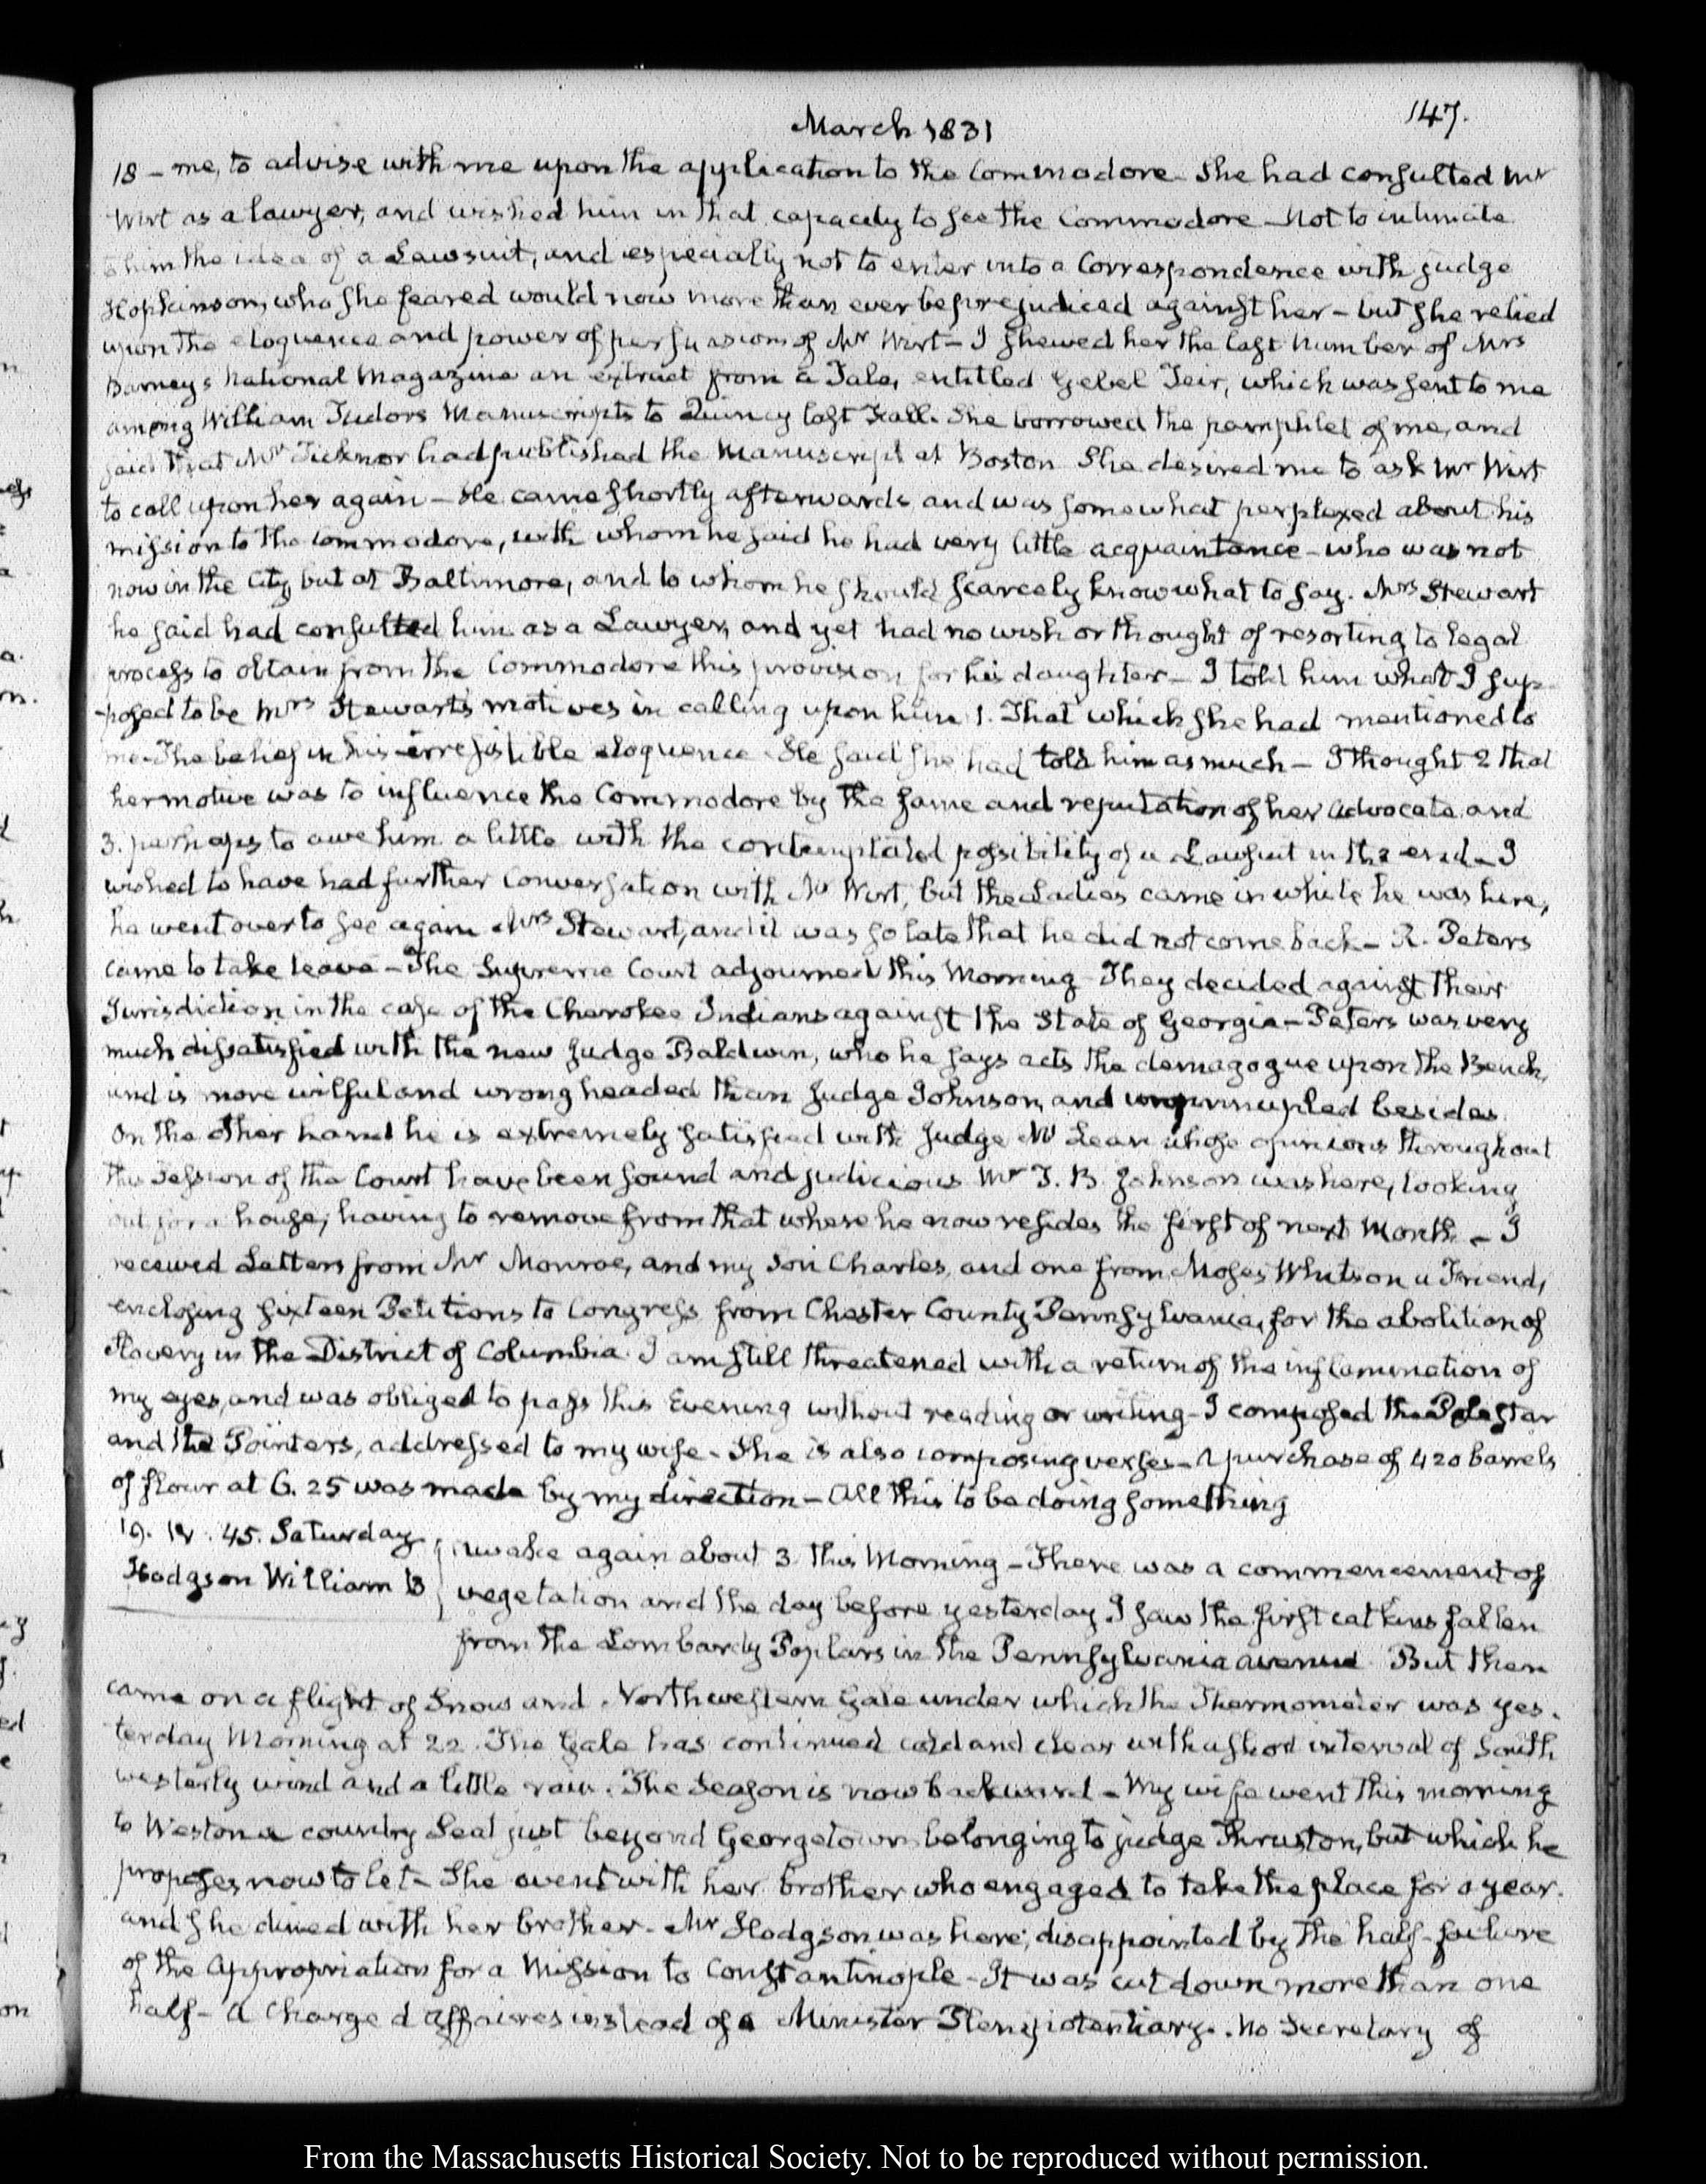 March 1831
147.
18 – me, to advise with me upon the application to the Commodore. She had consulted Mr
Wirt as a lawyer, and wished him in that capacity to see the Commodore – Not to intimate
to him the idea of a Lawsuit, and especially not to enter into a Correspondence with judge
Hopkinson, who she feared would now more than ever be prejudiced against her – but she relied
upon the eloquence and power of persuasion of Mr Wirt – I shewed her the last Number of Mrs
Barney's National Magazine an extract from a Tale, entitled Gebel Teir, which was sent to me
among William Tudors Manuscripts to Quincy last Fall. She borrowed the pamphlet of me, and
said that Mr Ticknor had published the Manuscript at Boston. She desired me to ask Mr Wirt
to call upon her again – He came shortly afterwards, and was somewhat perplexed about his
mission to the Commodore, with whom he said he had very little acquaintance – who was not
now in the City but at Baltimore, and to whom he should scarcely know what to say. Mrs Stewart
he said had consulted him as a Lawyer, and yet had no wish or thought of resorting to legal
process to obtain from the Commodore this provision for his daughter – I told him what I sup-
-posed to be Mrs Stewart's motives in calling upon him. 1. That which she had mentioned to
me – The belief in his irresistible eloquence – He said she had told him as much – I thought 2 that
her motive was to influence the Commodore by the fame and reputation of her advocate and
3. perhaps to awe him a little with the contemplated possibility of a Lawsuit in the end – I
wished to have had further Conversation with Mr Wirt, but the Ladies came in while he was here,
he went over to see again Mrs Stewart, and it was so late that he did not come back – R. Peters
came to take leave – The Supreme Court adjourned this Morning – They decided against their
Jurisdiction in the case of the Cherokee Indians against the State of Georgia – Peters was very
much dissatisfied with the new Judge Baldwin, who he says acts the demagogue upon the Bench,
and is more wilful and wrongheaded than Judge Johnson, and unprincipled besides.
On the other hand he is extremely satisfied with Judge McLean whose opinions throughout
this Session of the Court have been sound and judicious. Mr T. B. Johnson was here, looking
out for a house, having to remove from that where he now resides the first of next Month – I
received Letters from Mr Monroe, and my Son Charles, and one from Moses Whitson a Friend,
enclosing sixteen Petitions to Congress from Chester County Pennsylvania, for the abolition of
Slavery in the District of Columbia. I am still threatened with a return of the inflammation of
my eyes, and was obliged to pass this Evening without reading or writing – I composed the Pole Star
and the Pointers, addressed to my wife – She is also composing verses – A purchase of 420 barrels
of flour at 6.25 was made by my direction – All this to be doing something
19. IV. 45. Saturday
Hodgson William B
Awake again about 3. this Morning – There was a commencement of
vegetation and the day before yesterday I saw the first catkins fallen
from the Lombardy Poplars in the Pennsylvania avenue. But then
came on a flight of Snow and Northwestern Gale under which the Thermometer was yes-
terday Morning at 22. The Gale has continued cold and clear with a short interval of South
westerly wind and a little rain. The Season is now backward – My wife went this morning
to Weston a country Seat just beyond Georgetown belonging to judge Thruston, but which he
proposes now to let – She went with her brother who engaged to take the place for a year.
and she dined with her brother – Mr Hodgson was here; disappointed by the half-failure
of the Appropriation for a Mission to Constantinople – It was cut down more than one
half – A Charge d'Affaires instead of a Minister Plenipotentiary. No Secretary of
From the Massachusetts Historical Society. Not to be reproduced without permission.